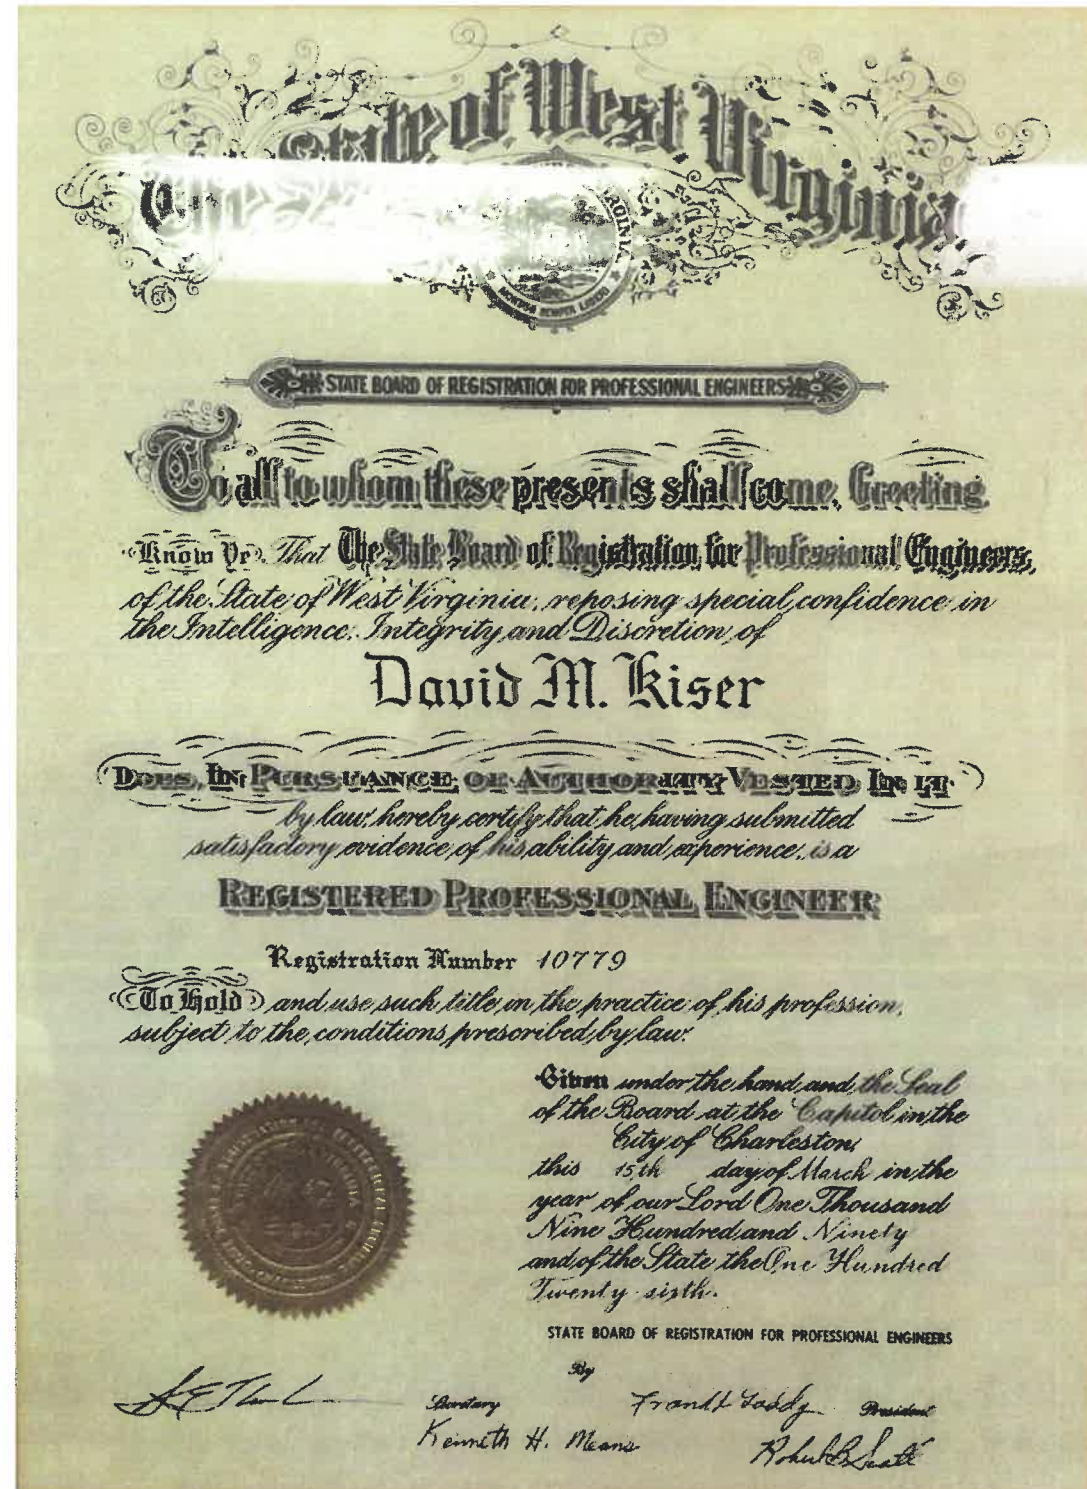 State of West Virginia
MONTANI SEMPER LIBERI
STATE BOARD OF REGISTRATION FOR PROFESSIONAL ENGINEERS
To all to whom these presents shall come, Greeting
Know Ye That The State Board of Registration for Professional Engineers,
of the State of West Virginia, reposing special confidence in
the Intelligence, Integrity and Discretion of
David M. Kiser
DOES, IN PURSUANCE OF AUTHORITY VESTED IN IT
by law, hereby certify that he, having submitted
satisfactory evidence of his ability and experience, is a
REGISTERED PROFESSIONAL ENGINEER
Registration Number 10779
To Hold and use such title in the practice of his profession,
subject to the conditions prescribed by law.
Given under the hand and the Seal
of the Board at the Capitol in the
City of Charleston,
this 15th day of March in the
year of our Lord One Thousand
Nine Hundred and Ninety
and of the State the One Hundred
Twenty sixth.
STATE BOARD OF REGISTRATION FOR PROFESSIONAL ENGINEERS
By
Secretary President
Kenneth H. Means